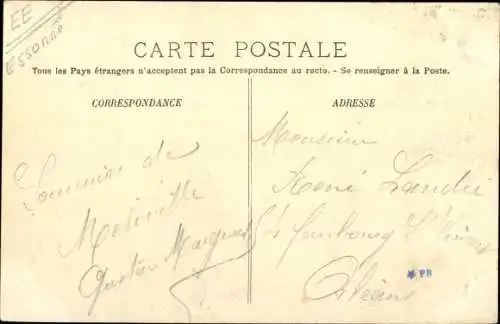 EE
Essonne
CARTE POSTALE
Tous les Pays étrangers n'acceptent pas la Correspondance au recto. - Se renseigner à la Poste.
CORRESPONDANCE
ADRESSE
Souvenir de
Gustave
Monsieur
René Landré
faubourg St Vincent
Orléans
PB